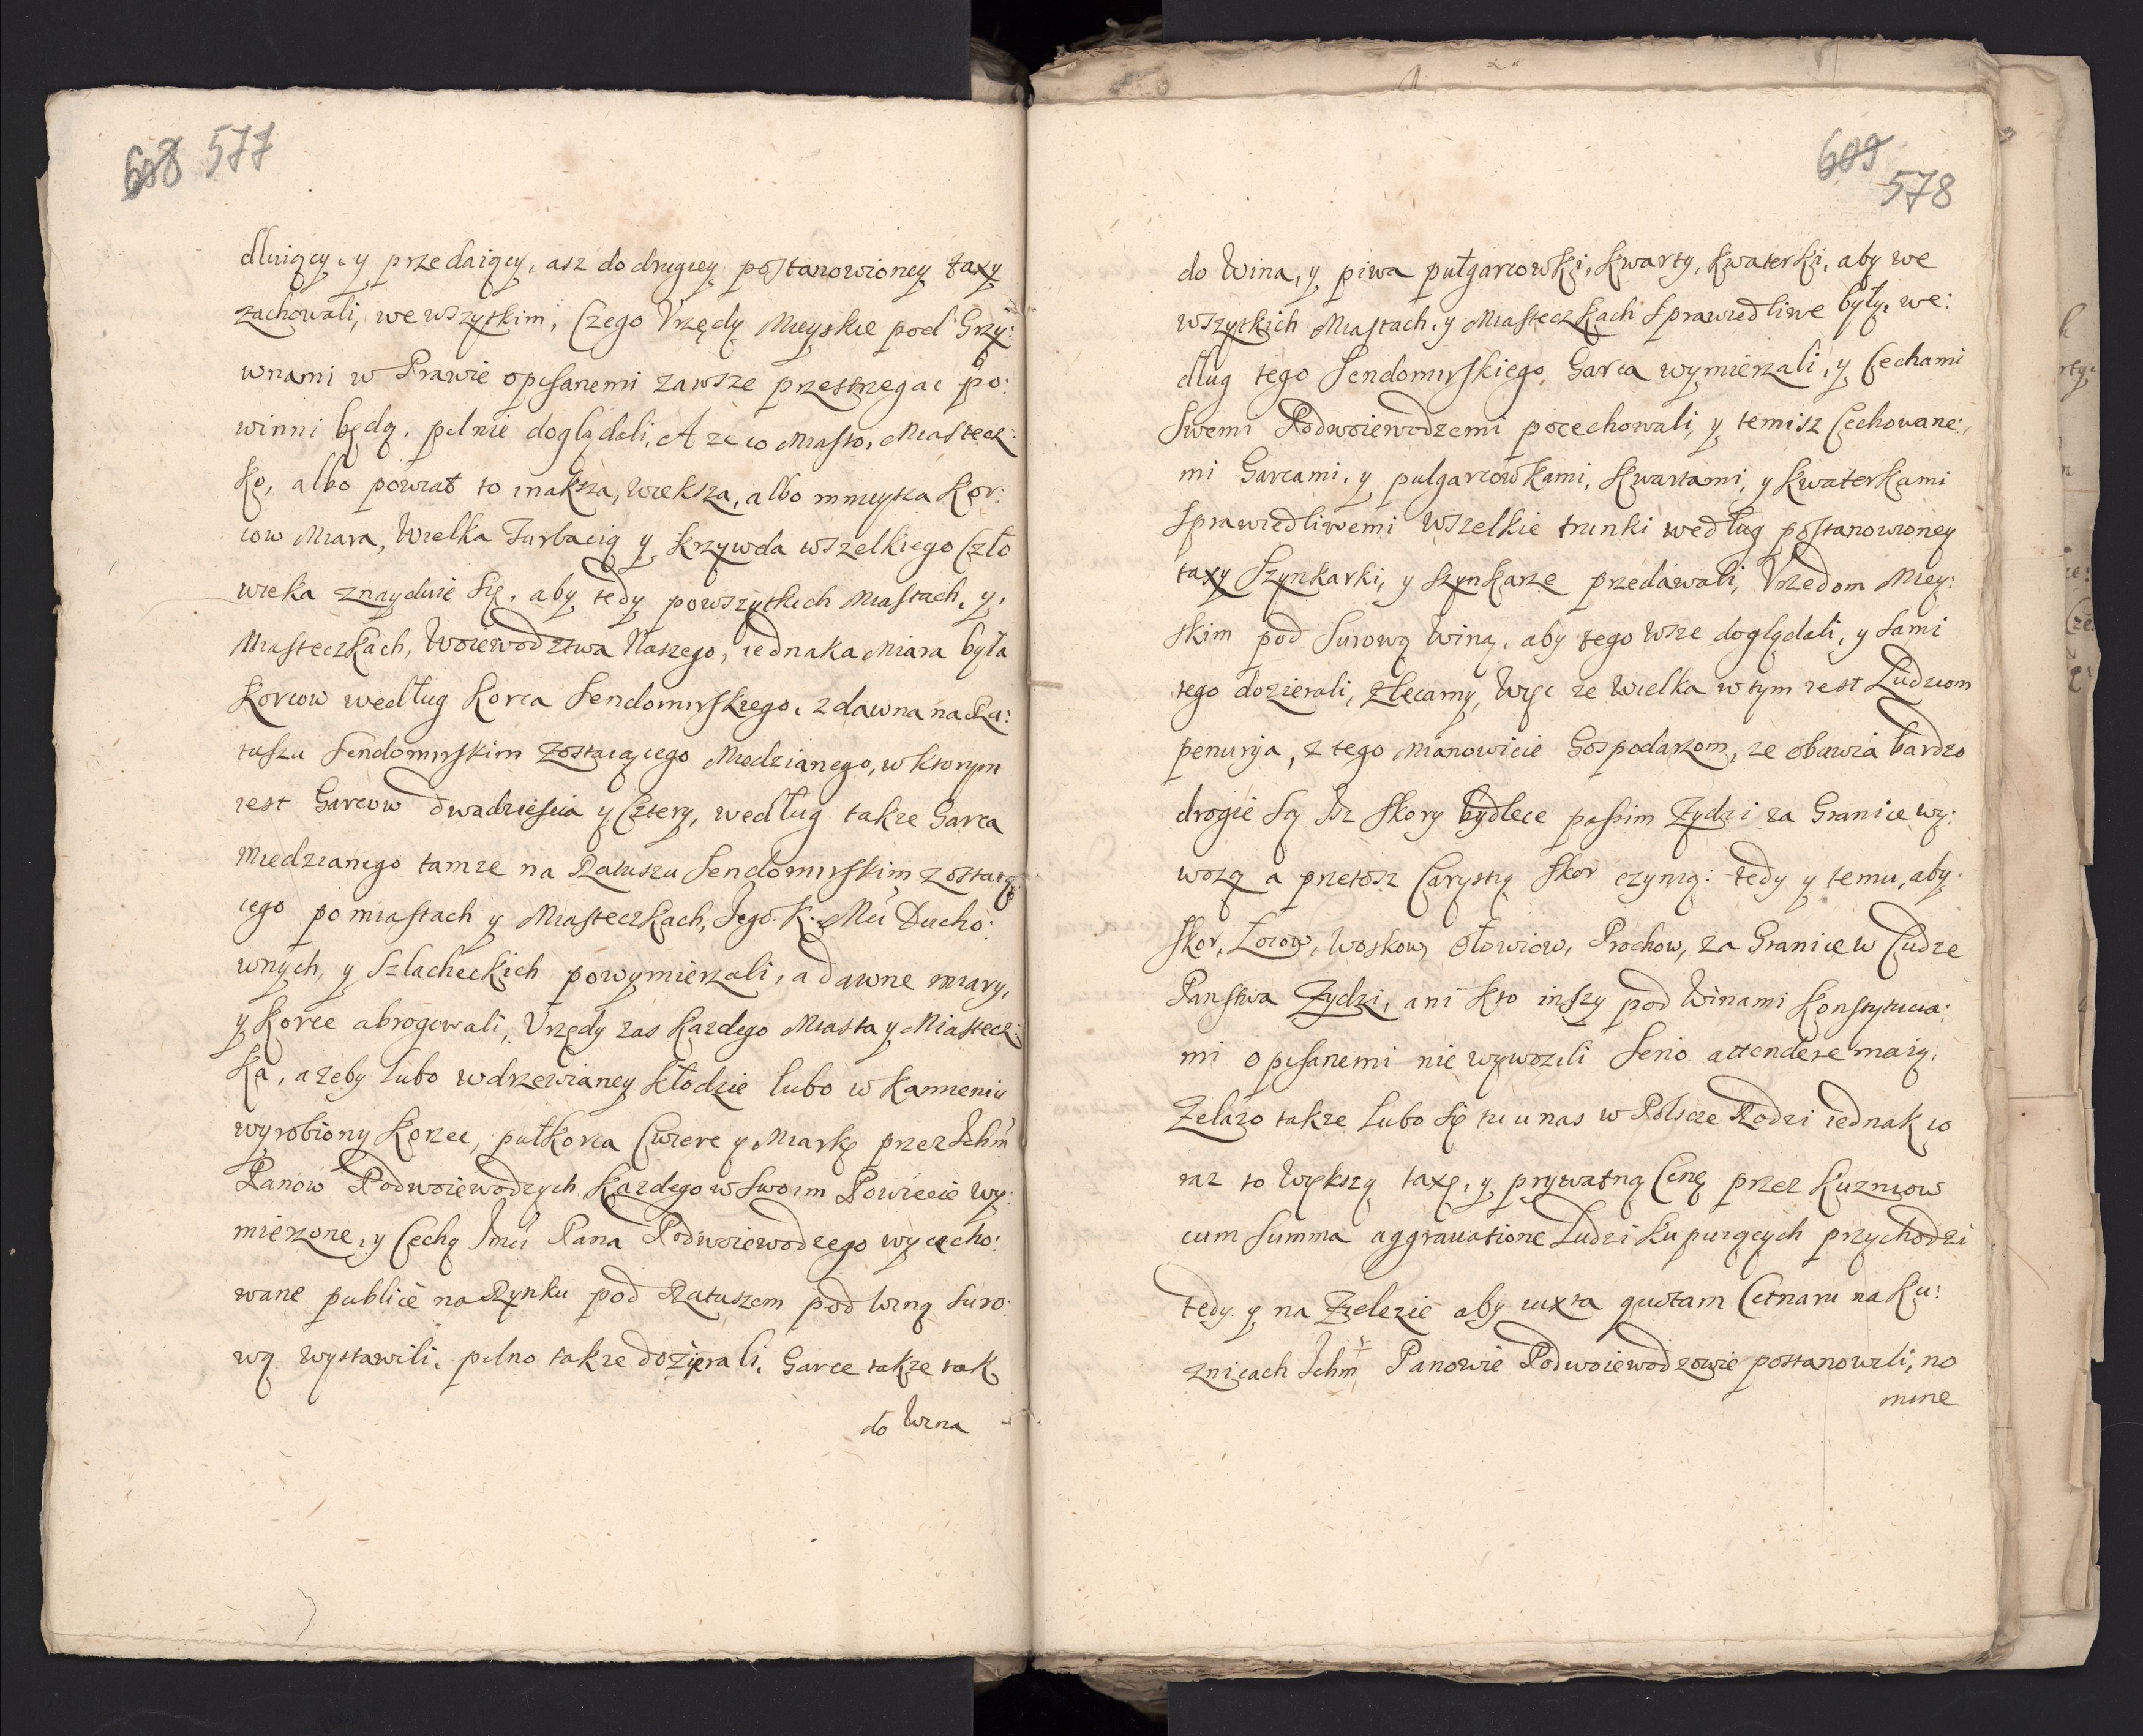 608 577
dluiący, y przedaiący, asz do drugiey postanowioney taxy
zachowali, we wszytkim, Czego Vrzędy Mieyskie pod Grzy:
wnami w Prawie opisanemi zawsze przestrzegac po:
winni będą, pilnie doglądali, A ze co Miasto, Miastecz:
ko, albo powiat to inaksza, Wieksza, albo mnieysza Kor:
cow Miara, Wielka Turbacią y krzywda wszelkiego Czło
wieka znayduie Się, aby tedy powszytkich Miastach, y,
Miasteczkach, Woiewodztwa Naszego, iednaka Miara była
Korcow według Korca Sendomirskiego, zdawna na Ra:
tuszu Sendomirskim Zostaiącego Miedzianego, w ktorym
iest Garcow dwadziescia y Cztery, według takze Garca
Miedzianego tamze na Ratuszu Sendomirskim zostaią
cego po miastach y Miasteczkach, Jego. K: Mci Ducho:
wnych, y Szlacheckich powymierzali, a dawne miary,
y Korce abrogowali, Vrzędy zas kazdego Miasta y Miastecz:
ka, azeby lubo wdrzewianey kłodzie lubo w kamieniu
wyrobiony Korzec, pułkorca Cwierc y Miarkę przez Ichm
Panow Podwoiewodzych kazdego w Swoim Powiecie wy:
mierzone, y Cechą Jmci Pana Podwoiewodzego wycecho:
wane publice na Rynku pod Ratuszem pod winą suro:
wą wystawili, pilno takze dozierali, Garce takze tak
do Wina
609
578
do Wina, y piwa pułgarcowki, kwarty, kwaterki, aby we
wszytkich Miastach, y Miasteczkach Sprawiedliwe były, we:
dług tego Sendomirskiego Garca wymierzali, y Cechami
Swemi Podwoiewodzemi pocechowali, y temisz Cechowane:
mi Garcami, y pulgarcowkami, kwartami, y kwaterkami
Sprawiedliwemi wszelkie trunki według postanowioney
taxy Szynkarki, y szynkarze przedawali, Vrzedom Miey:
skim pod Surową Winą, aby tego wsze doglądali, y Sami
tego dozierali, zlecamy, Więc ze Wielka w tym iest Ludziom
penurja, z tego Mianowicie Gospodarzom, ze obuwia bardzo
drogie Są Jz skory bydlece passim Zydzi za Granice wy:
wozą a przetosz Carystią Skor czynią: tedy y temu, aby.
Skor, Łoiow, Woskow, Ołowiow, Prochow, za Granice w Cudze
Panstwa Zydzi, ani kto inszy pod Winami Konstytucia:
mi opisanemi nie wywozili Serio attendere maią,
Zelazo takze Lubo Się tu u nas w Polscze Rodzi iednak co
raz to Większą taxę, y prywatną Cenę przez Kuzniow
cum Summa aggrauatione Ludzi kupuiących przychodzi
tedy y na Zelezie aby iuxta quotam Cetnaru na Ku:
znicach Ichm Panowie Podwoiewodzowie postanowili, no
mine